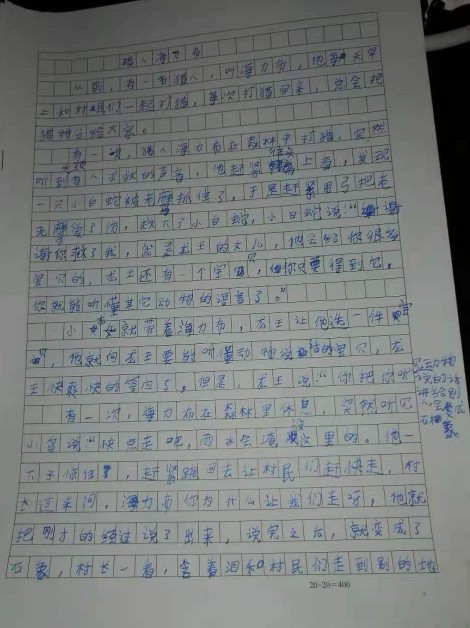 猎人海力布
从前，有一名猎人，叫海力布，他每天早
上和村民们一起打猎，每次打猎回来，总会把
猎物分给大家。
有一次，猎人海力布在森林中打猎，突然
听到有人求救的声音，他赶紧往上看，发现
一只小白蛇被老鹰抓住了，于是赶紧用弓把老
老鹰受了伤，救下了小白蛇，小白蛇说：“谢谢
谢你救了我，我是龙王的女儿，他会给你很多
宝贝的，龙王还有一个宝贝，你只要得到它，
你就能听懂其它动物的语言了。”
小蛇就带着海力布，龙王让他选一件宝
他就向龙王要能听懂动物说话的宝贝，龙
王快快的答应了。但是，龙王说：“你把你听
到动物
说的话
讲给别
人会变成
石像。
有一次，海力布在森林里休息，突然听见
小鸟说：“快点走吧，雨水会淹没这里的。他一
下子愣住了，赶紧跑回去让村民们赶快走，村
过来问，海力布你为什么让我们走呀，他就
把刚才的经过说了出来，说完之后，就变成了
石象，村长一看，含着泪和村民们走到别的地
20×20=400